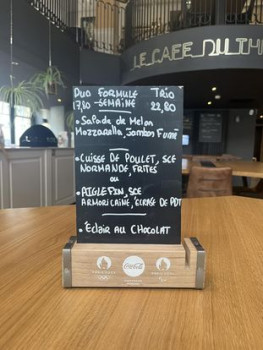 LE CAFE DU THÉ
DUO FORMULE TRIO
17,80 - SEMAINE 22,80
• Salade de Melon
Mozzarella, Jambon Fumé
• CUISSE DE POULET, SCE
NORMANDE, FRITES
ou
• AIGLEFIN, SCE
ARMORICAINE, ECRASÉ DE PDT
• Eclair AU CHOCOLAT
Coca-Cola